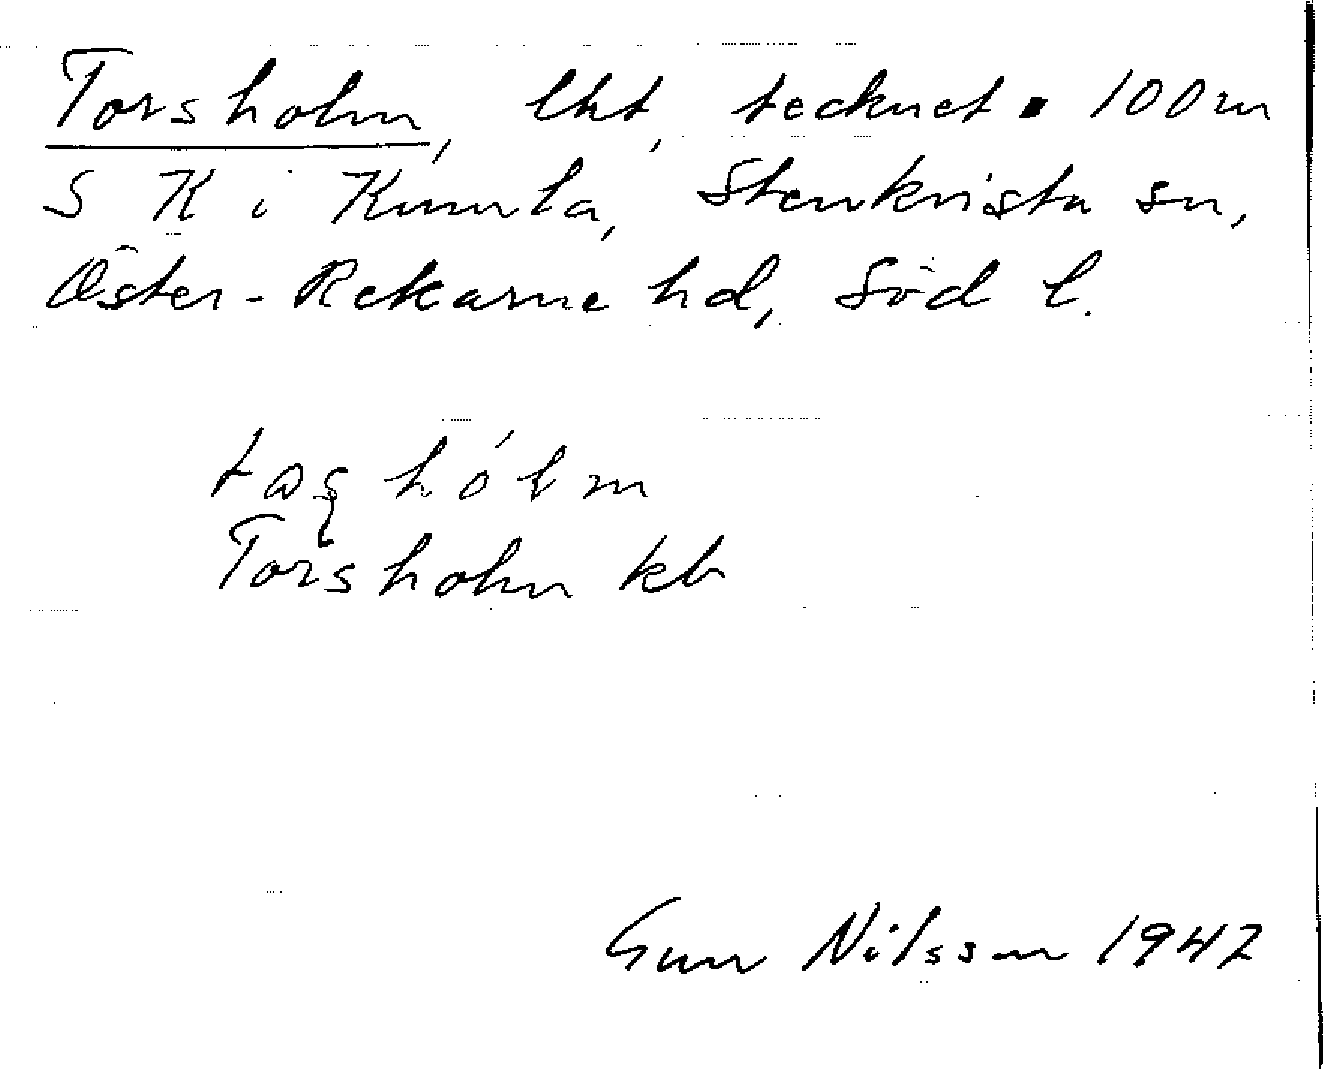 Torsholm, lht, tecknet ▪ 100 m
S K i Kumla, Stenkvista sn,
Öster-Rekarne hd, Söd l.
Torsholm kb
Gun Nilsson 1942